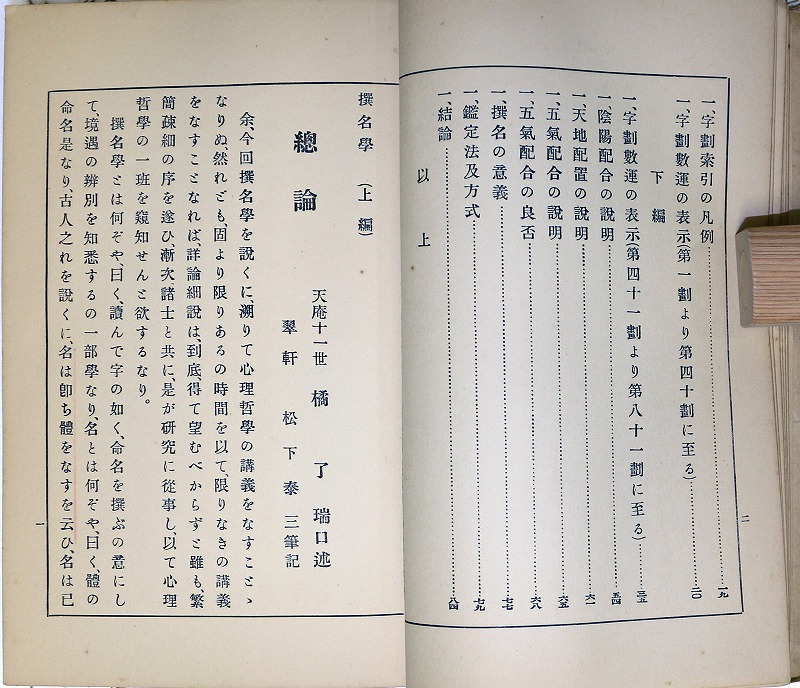 一、字劃索引の凡例……一九
一、字劃數運の表示(第一劃より第四十劃に至る)……二〇
下編
一、字劃數運の表示(第四十一劃より第八十一劃に至る)……三五
一、陰陽配合の説明……五四
一、天地配置の説明……六一
一、五氣配合の説明……六五
一、五氣配合の良否……六八
一、撰名の意義……七七
一、鑑定法及方式……七九
一、結論……八四
以上
二
撰名學(上編)
總論
天庵十一世 橘了瑞口述
翠軒 松下泰三筆記
余、今回撰名學を説くに、溯りて心理哲學の講義をなすことゝ
なりぬ、然れども、固より限りあるの時間を以て限りなきの講義
をなすことなれば、詳論細説は、到底、得て望むべからずと雖も、繁
簡疎細の序を逐ひ、漸次、諸士と共に、是が研究に從事し、以て心理
哲學の一班を窺知せんと欲するなり。
撰名學とは何ぞや、曰く、讀んで字の如く、命名を撰ぶの意にし
て、境遇の辨別を知悉するの一部學なり、名とは何ぞや、曰く、體の
命名是なり、古人之れを説くに、名は卽ち體をなすを云ひ、名は已
一